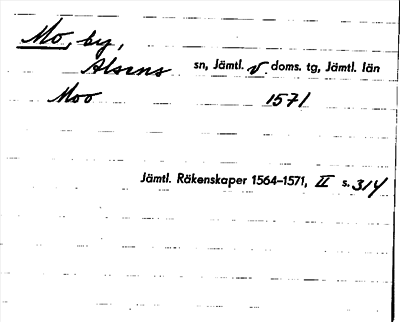 Mo, by,
Alsens sn, Jämtl. v. doms. tg, Jämtl. län
Moo 1571
Jämtl. Räkenskaper 1564–1571, II s. 314